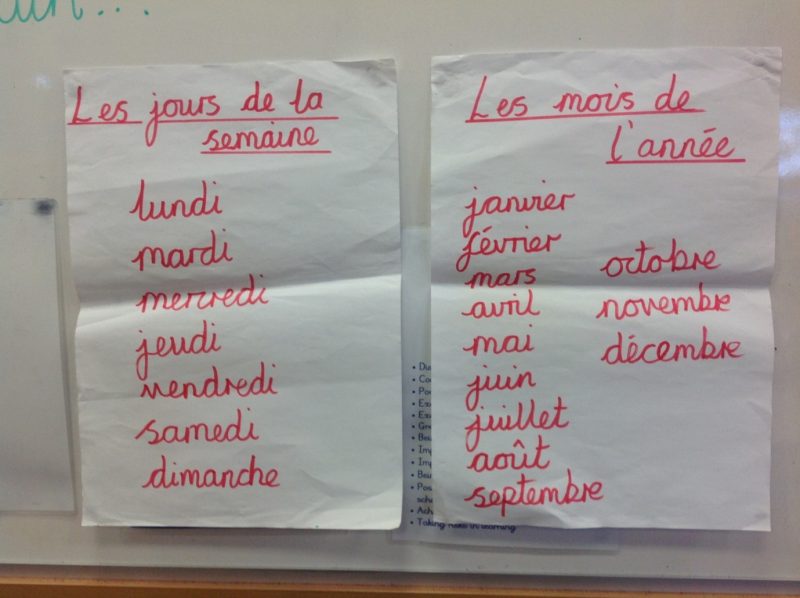 Les jours de la
semaine
lundi
mardi
mercredi
jeudi
vendredi
samedi
dimanche
Les mois de
l'année
janvier
février
mars
avril
mai
juin
juillet
août
septembre
octobre
novembre
décembre
• Taking risks in learning